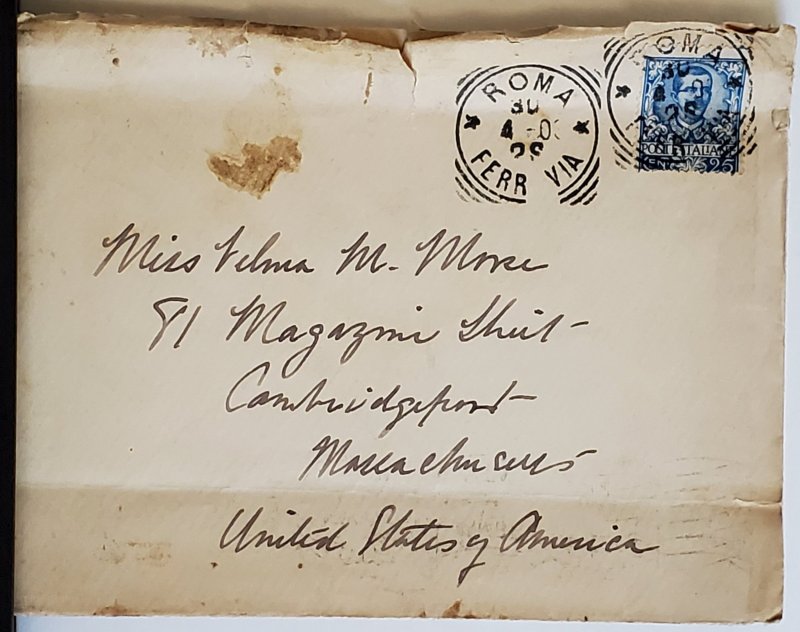 ROMA
30
4-0
FERR VIA
ROMA
30
4
POSTE ITALIANE
25
Miss Velma M. Morse
81 Magazine Street
Cambridgeport
Massachusetts
United States of America